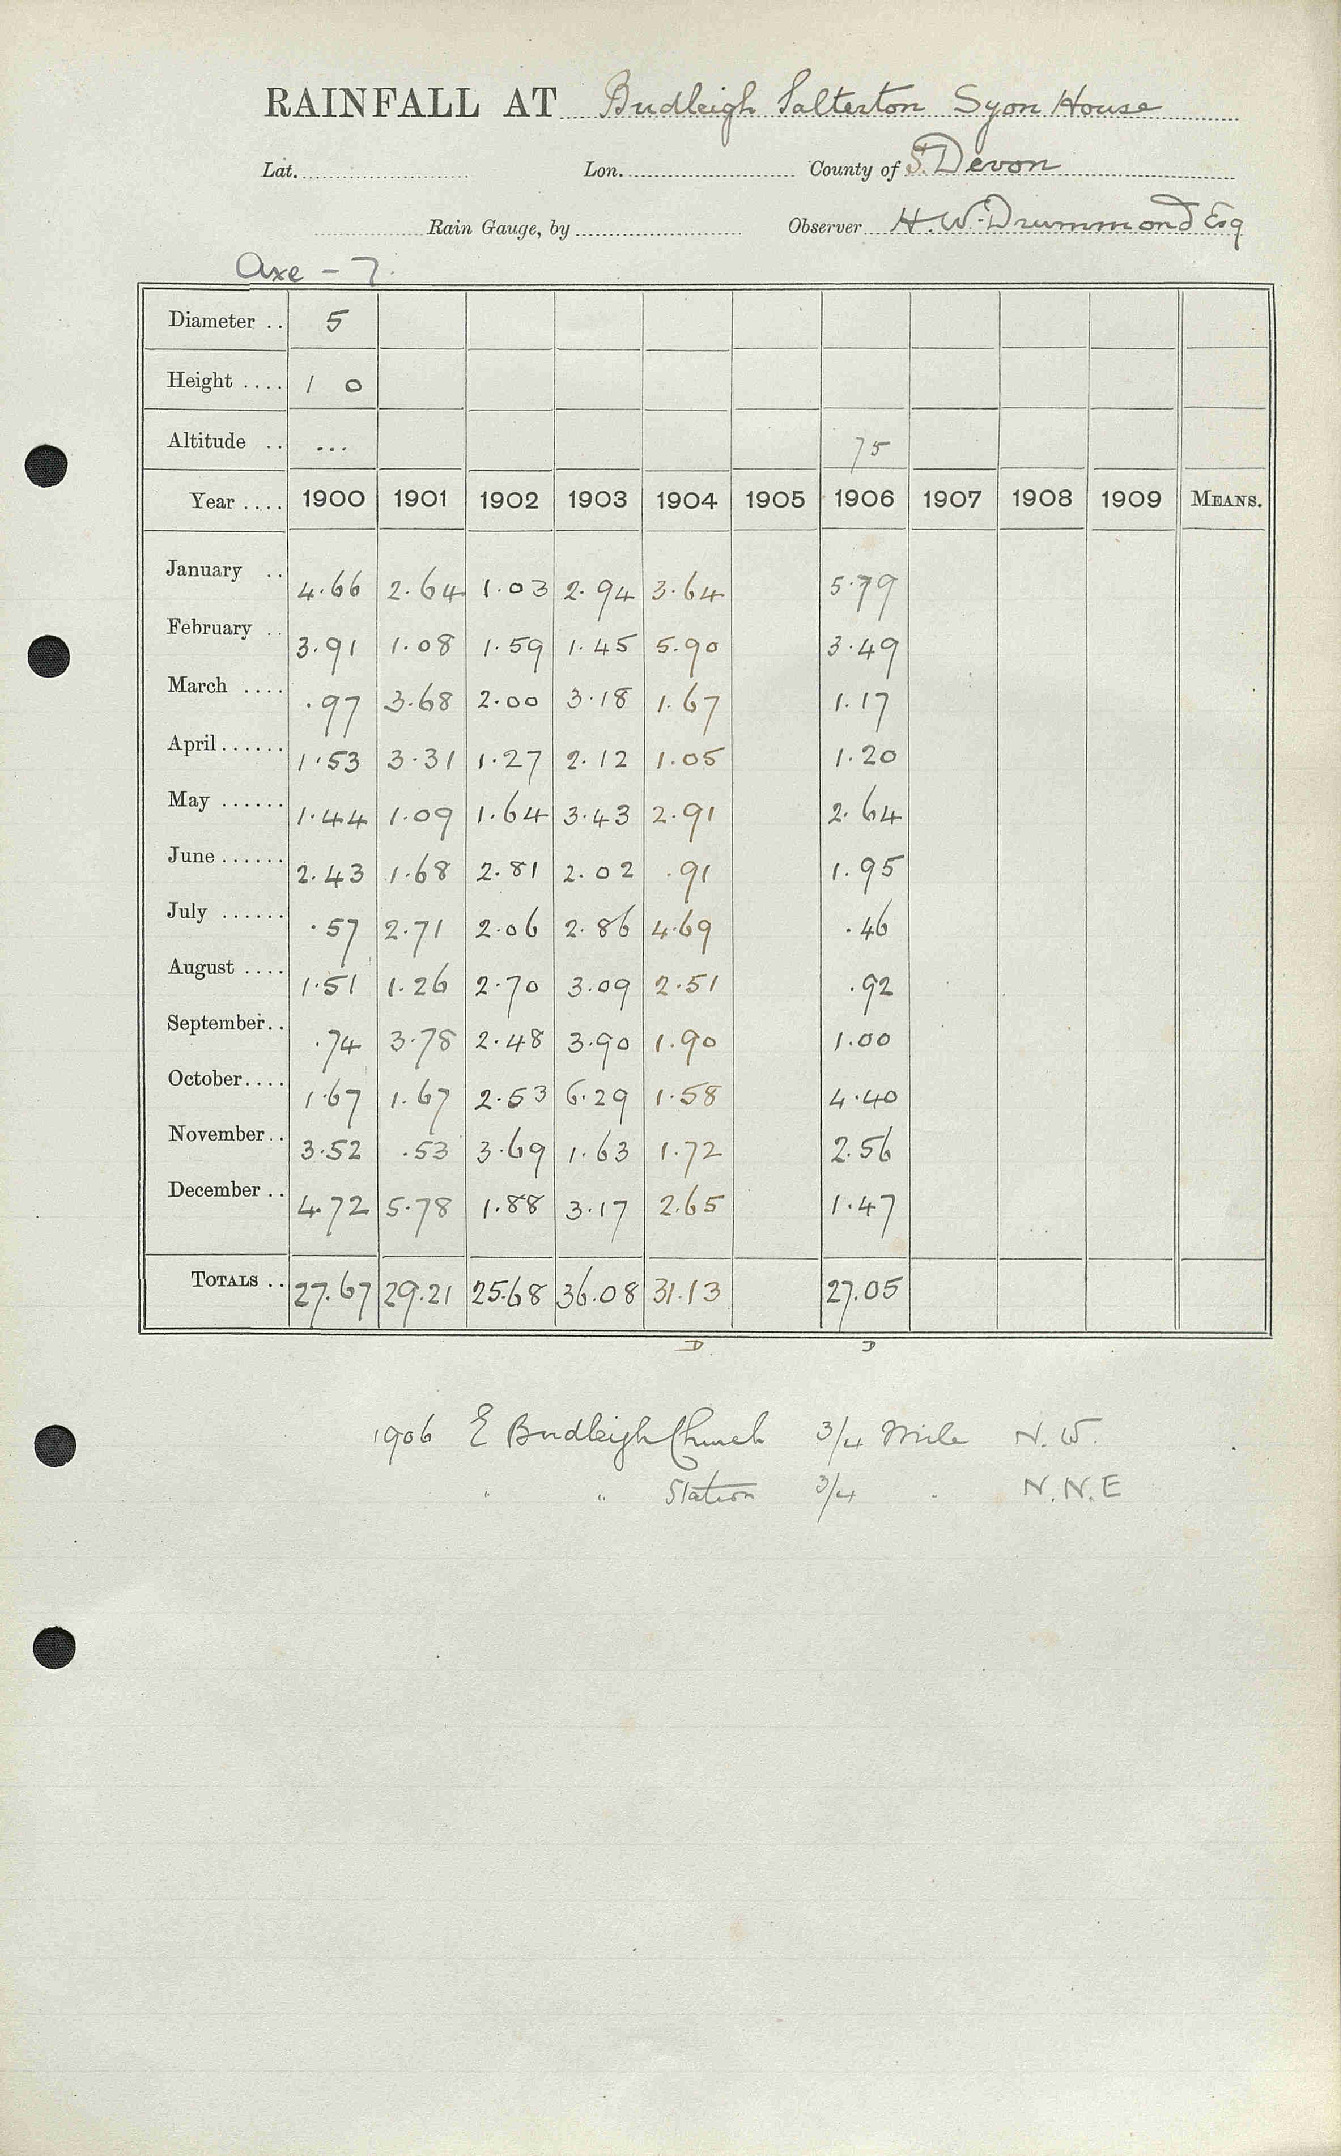 RAINFALL AT Budleigh Salterton Syon House
Lat. Lon. County of S. Devon
Rain Gauge, by Observer H. W. Drummond Esq
Axe - 7.
Diameter .. 5
Height .... 1 0
Altitude .. ... 75
Year .... 1900 1901 1902 1903 1904 1905 1906 1907 1908 1909 MEANS.
January .. 4.66 2.64 1.03 2.94 3.64 5.79
February .. 3.91 1.08 1.59 1.45 5.90 3.49
March .... .97 3.68 2.00 3.18 1.67 1.17
April ...... 1.53 3.31 1.27 2.12 1.05 1.20
May ...... 1.44 1.09 1.64 3.43 2.91 2.64
June ...... 2.43 1.68 2.81 2.02 .91 1.95
July ...... .57 2.71 2.06 2.86 4.69 .46
August .... 1.51 1.26 2.70 3.09 2.51 .92
September.. .74 3.78 2.48 3.90 1.90 1.00
October.... 1.67 1.67 2.53 6.29 1.58 4.40
November.. 3.52 .53 3.69 1.63 1.72 2.56
December .. 4.72 5.78 1.88 3.17 2.65 1.47
TOTALS .. 27.67 29.21 25.68 36.08 31.13 27.05
D D
1906 E Budleigh Church 3/4 Mile N.W.
" " Station 3/4 " N.N.E